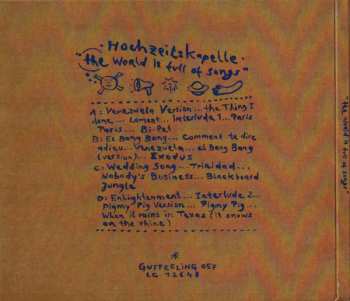 Hochzeitskapelle
"the world is full of songs"
A: Venezuela Version... the Thing I
done... Lament... Interlude 1... Paris
Paris... Bi-Pat
B: El Bong Bong... Comment te dire
adieu... Venezuela... el Bong Bong
(version)... Exodus
C: Wedding Song... Trinidad...
Nobody's Business... Blackboard
Jungle
D: Enlightenment... Interlude 2...
Pigmy Pig Version... Pigmy Pig...
When it rains in Texas (it snows
on the rhine)
GUTFEELING 057
LC 12648
"the world is full of songs"